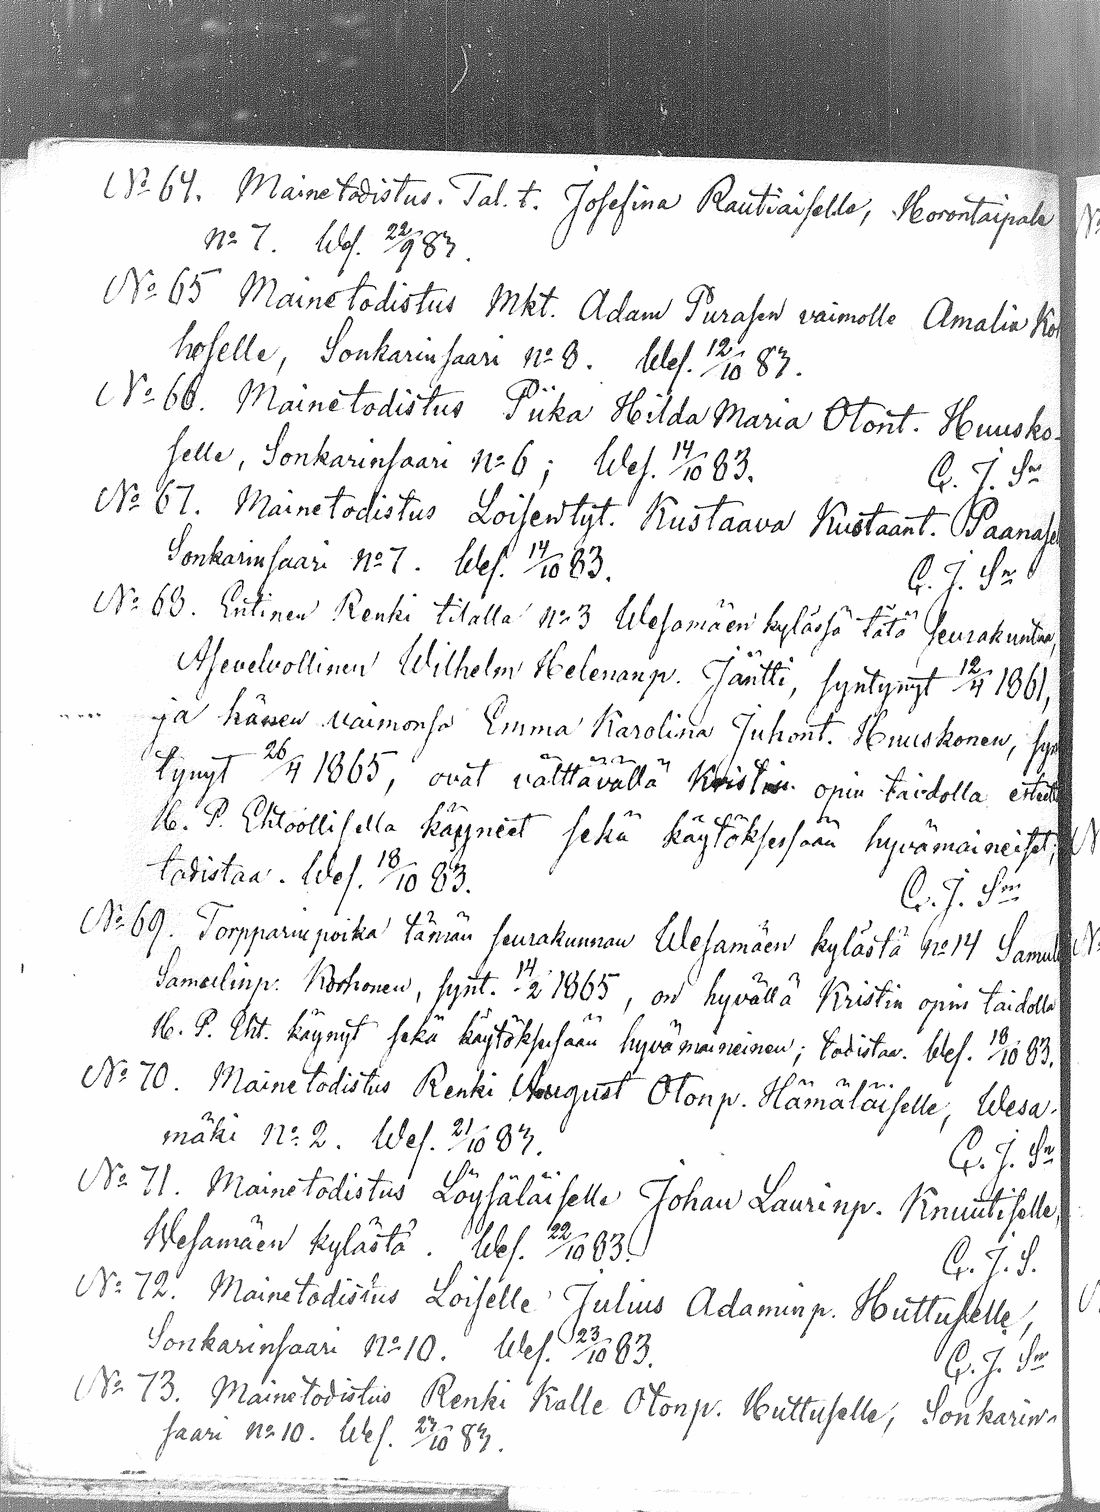 No 64. Mainetodistus. Tal. t. Josefina Rautiaiselle, Horontaipale
no 7. Wes. 22/9 83.
No 65 Mainetodistus Mkt. Adam Purasen vaimolle Amalia Kor
hoselle, Sonkarinsaari no 8. Wes. 12/10 83.
No 66. Mainetodistus Piika Hilda Maria Otont. Huusko-
selle, Sonkarinsaari no 6; Wes. 14/10 83. C. J. Sn
No 67. Mainetodistus Loisentyt. Kustaava Kustaant. Paanase
Sonkarinsaari no 7. Wes. 14/10 83. C. J. Sn
No 68. Entinen Renki tilalla no 3 Wesamäen kylässä tätä seurakuntaa,
Asevelvollinen Wilhelm Helenanp. Jäntti, syntynyt 12/4 1861,
ja hänen vaimonsa Emma Karolina Juhont. Huuskonen, syn
tynyt 26/4 1865, ovat välttävällä Kristin opin taidolla
H. P. Ehtoollisella käyneet sekä käytöksessään hyvämaineiset;
todistaa. Wes. 18/10 83. C. J. Sn
No 69. Torpparinpoika tämän seurakunnan Wesamäen kylästä no 14 Samul
Samulinp. Korhonen, synt. 14/2 1865, on hyvällä Kristin opin taidolla
H. P. Eht. käynyt sekä käytöksessään hyvämaineinen; todistaa. Wes. 18/10 83.
No 70. Mainetodistus Renki August Otonp. Hämäläiselle, Wesa-
mäki no 2. Wes. 21/10 83. C. J. Sn
No 71. Mainetodistus Löysäläiselle Johan Laurinp. Knuutiselle,
Wesamäen kylästä. Wes. 22/10 83. C. J. S.
No 72. Mainetodistus Loiselle Julius Adaminp. Huttuselle,
Sonkarinsaari no 10. Wes. 23/10 83. C. J. Sn
No 73. Mainetodistus Renki Kalle Otonp. Huttuselle, Sonkarin-
saari no 10. Wes. 27/10 83.